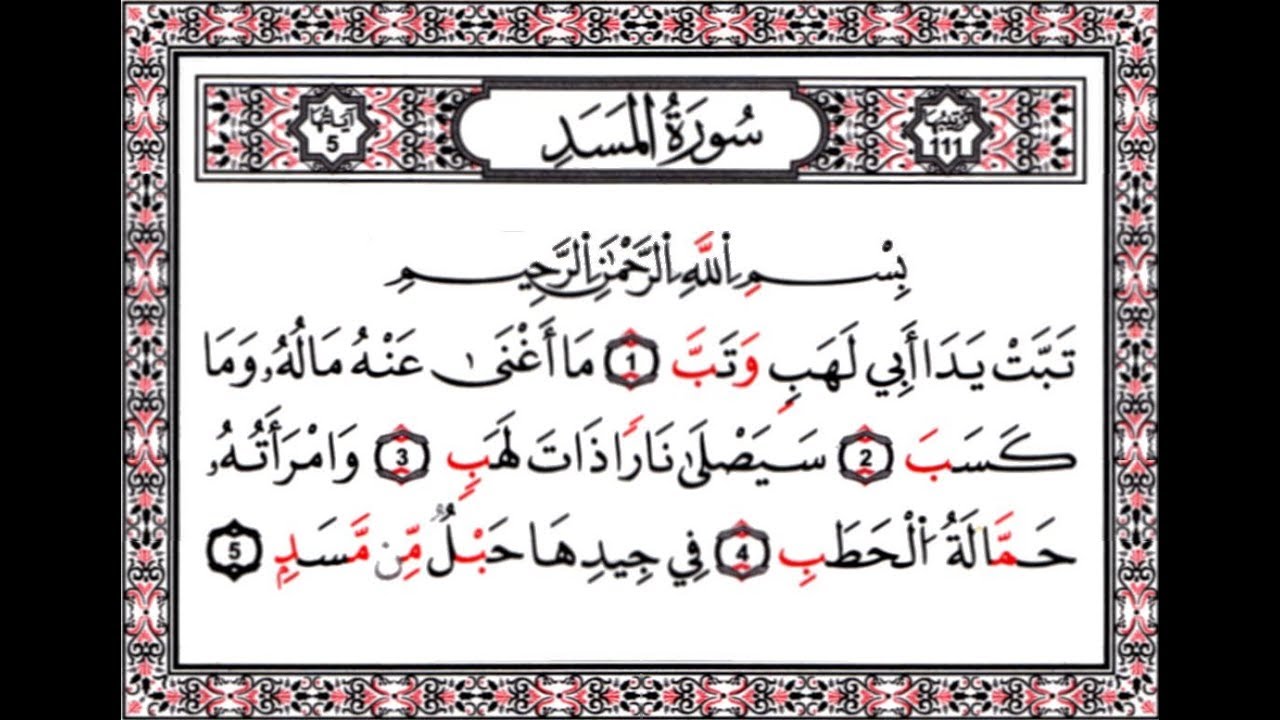 ترتيبها 111
سُورَةُ المَسَدِ
آياتها 5
بِسْمِ اِ۬للَّهِ اِ۬لرَّحْمَٰنِ اِ۬لرَّحِيمِ
تَبَّتْ يَدَا أَبِي لَهَبٍ وَتَبَّ 1 مَا أَغْنَىٰ عَنْهُ مَالُهُۥ وَمَا
كَسَبَ 2 سَيَصْلَىٰ نَارًا ذَاتَ لَهَبٍ 3 وَامْرَأَتُهُۥ
حَمَّالَةُ اُ۬لْحَطَبِ 4 فِي جِيدِهَا حَبْلٌ مِّن مَّسَدٍ 5